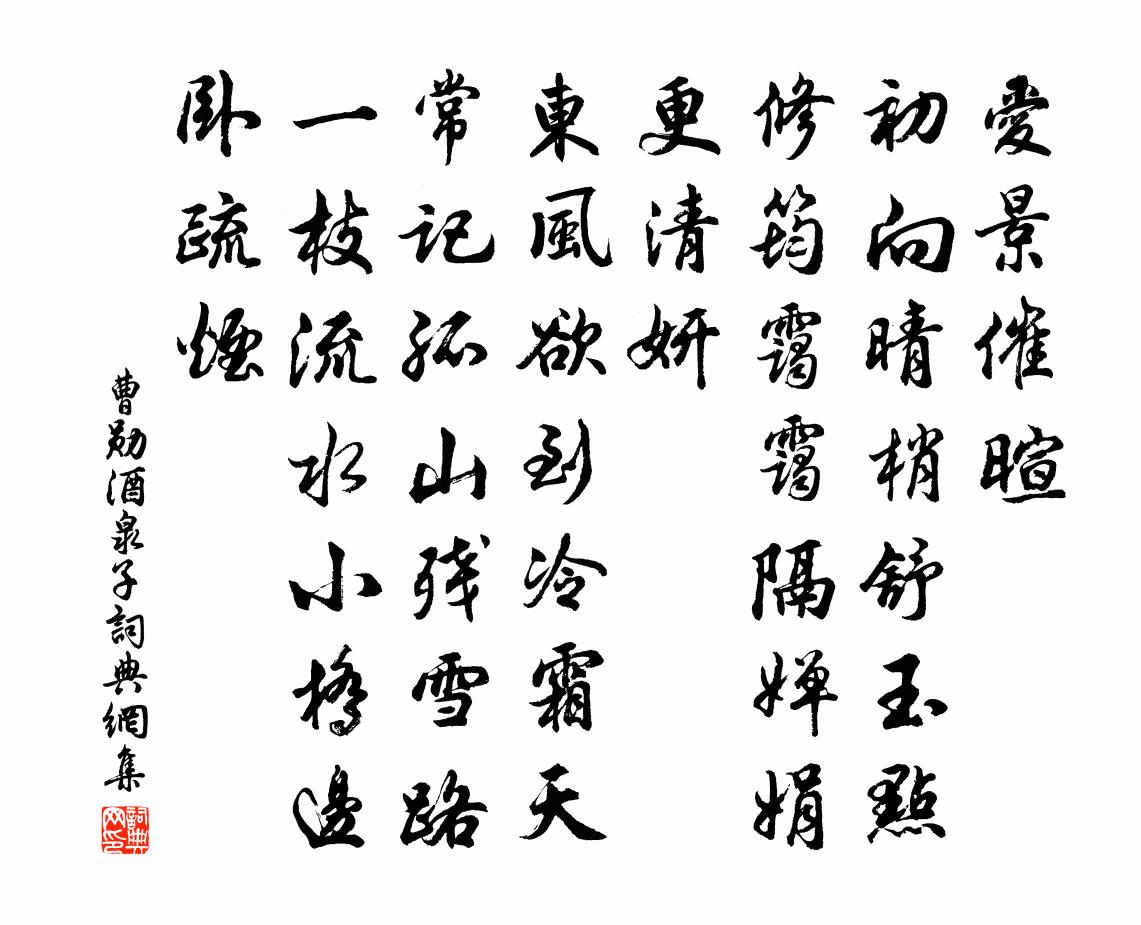 愛景催暄
初向晴梢舒玉點
修筠靄靄隔嬋娟
更清妍
東風欲到冷霜天
常記孤山殘雪路
一枝流水小橋邊
臥疏煙
曹勛酒泉子詞典網集
詞典网印